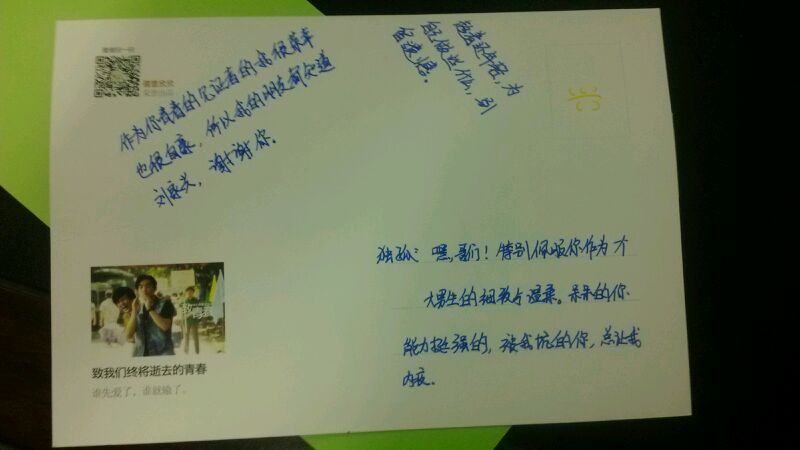 作为你青春的见证者的我很荣幸
也很自豪，所以我的朋友都知道
刘家兴，谢谢你。
趁着还年轻，为
独孤：嘿，哥们！特别佩服你作为一个
大男生的细致与温柔。呆呆的你
能力挺强的，被我坑的你，总让我
内疚。
致我们终将逝去的青春
谁先爱了，谁就输了。